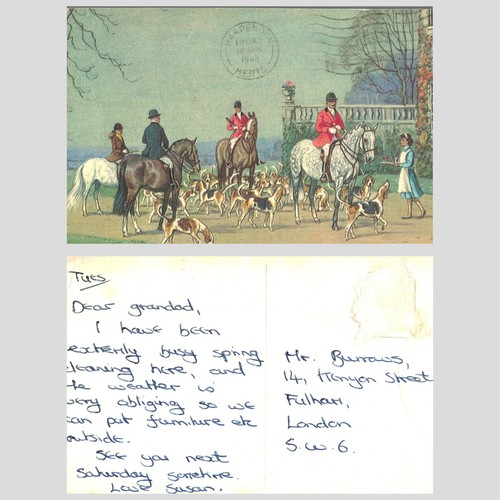 HARPENDEN
HERTS
Tues
Dear grandad,
I have been
extremly busy spring
cleaning here, and
the weather is
very obliging so we
can put furniture etc
outside.
See you next
Saturday sometime.
Love Susan.
Mr. Burrows,
14, Kenyon Street
Fulham,
London
S.W.6.